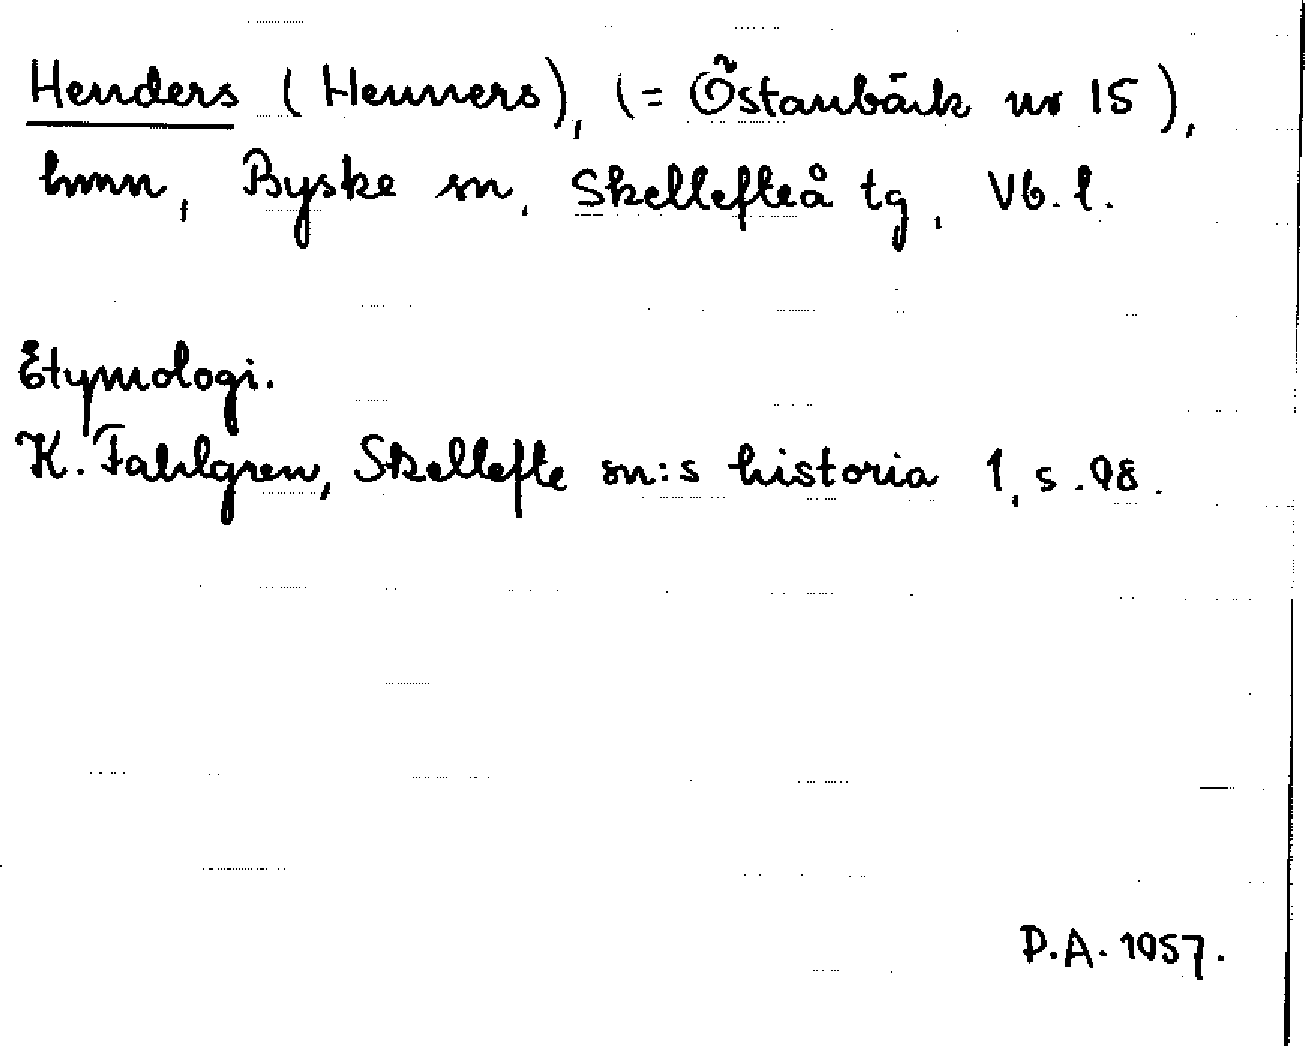 Henders (Henners), (= Östanbäck nr 15),
hmn, Byske sn, Skellefteå tg, Vb. l.
Etymologi.
K. Fahlgren, Skellefte sn:s historia 1, s. 98.
D.A. 1957.